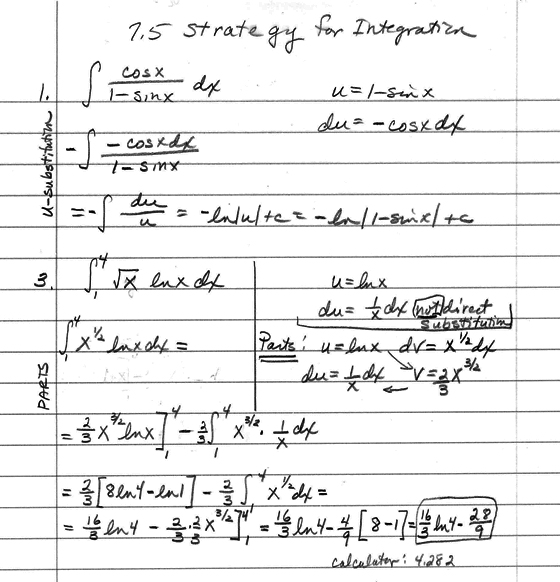 7.5 Strategy for Integration
1. ∫ cosx/(1-sinx) dx    u = 1-sinx
du = -cosxdx
u-substitution
-∫ -cosxdx/(1-sinx)
= -∫ du/u = -ln|u|+c = -ln|1-sinx|+c
3. ∫₁⁴ √x lnx dx    u = lnx
du = 1/x dx not direct
substitution
∫₁⁴ x^(1/2) lnx dx =    Parts: u = lnx  dv = x^(1/2) dx
du = 1/x dx ← v = 2/3 x^(3/2)
PARTS
= 2/3 x^(3/2) lnx]₁⁴ - 2/3 ∫₁⁴ x^(3/2) · 1/x dx
= 2/3 [8ln4 - ln1] - 2/3 ∫₁⁴ x^(1/2) dx =
= 16/3 ln4 - 2/3 · 2/3 x^(3/2)]₁⁴ = 16/3 ln4 - 4/9 [8-1] = 16/3 ln4 - 28/9
calculator: 4.282